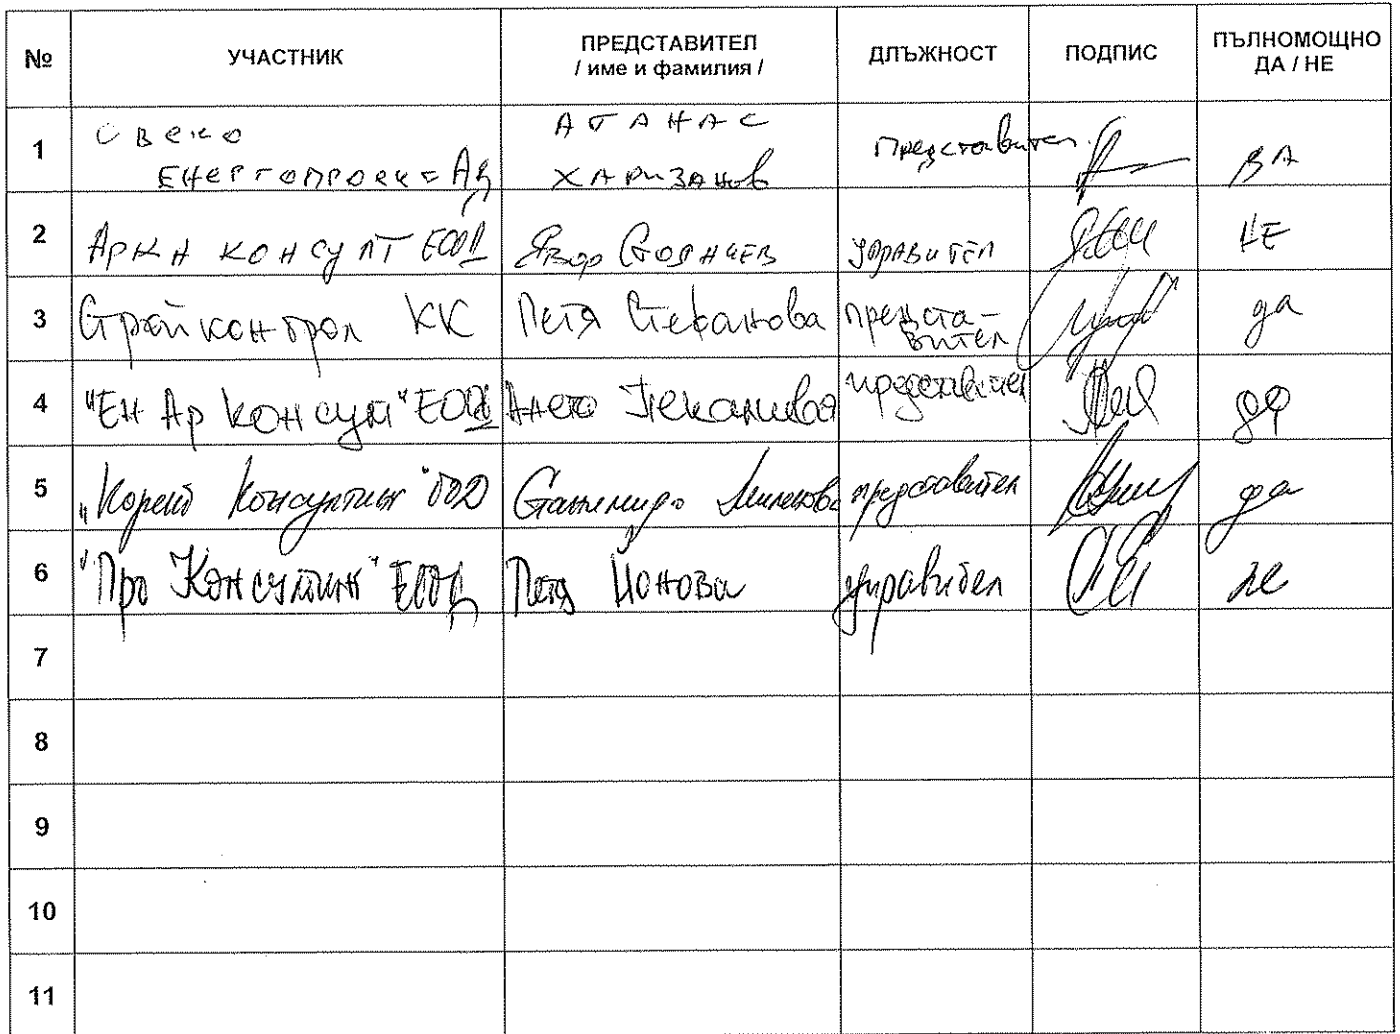 № УЧАСТНИК ПРЕДСТАВИТЕЛ / име и фамилия / ДЛЪЖНОСТ ПОДПИС ПЪЛНОМОЩНО ДА / НЕ
1 Свеко Енергопроект АД АТАНАС ХАРИЗАНОВ представител ДА
2 Арка консулт ЕООД Явор Стоянчев управител НЕ
3 Стройконтрол КК Петя Стефанова представител да
4 "Ен Ар Консулт" ЕООД Анета представител да
5 "Корект Консултинг" ООД Станимира Миленова представител да
6 "Про Консултинг" ЕООД Петя Йонова управител не
7
8
9
10
11